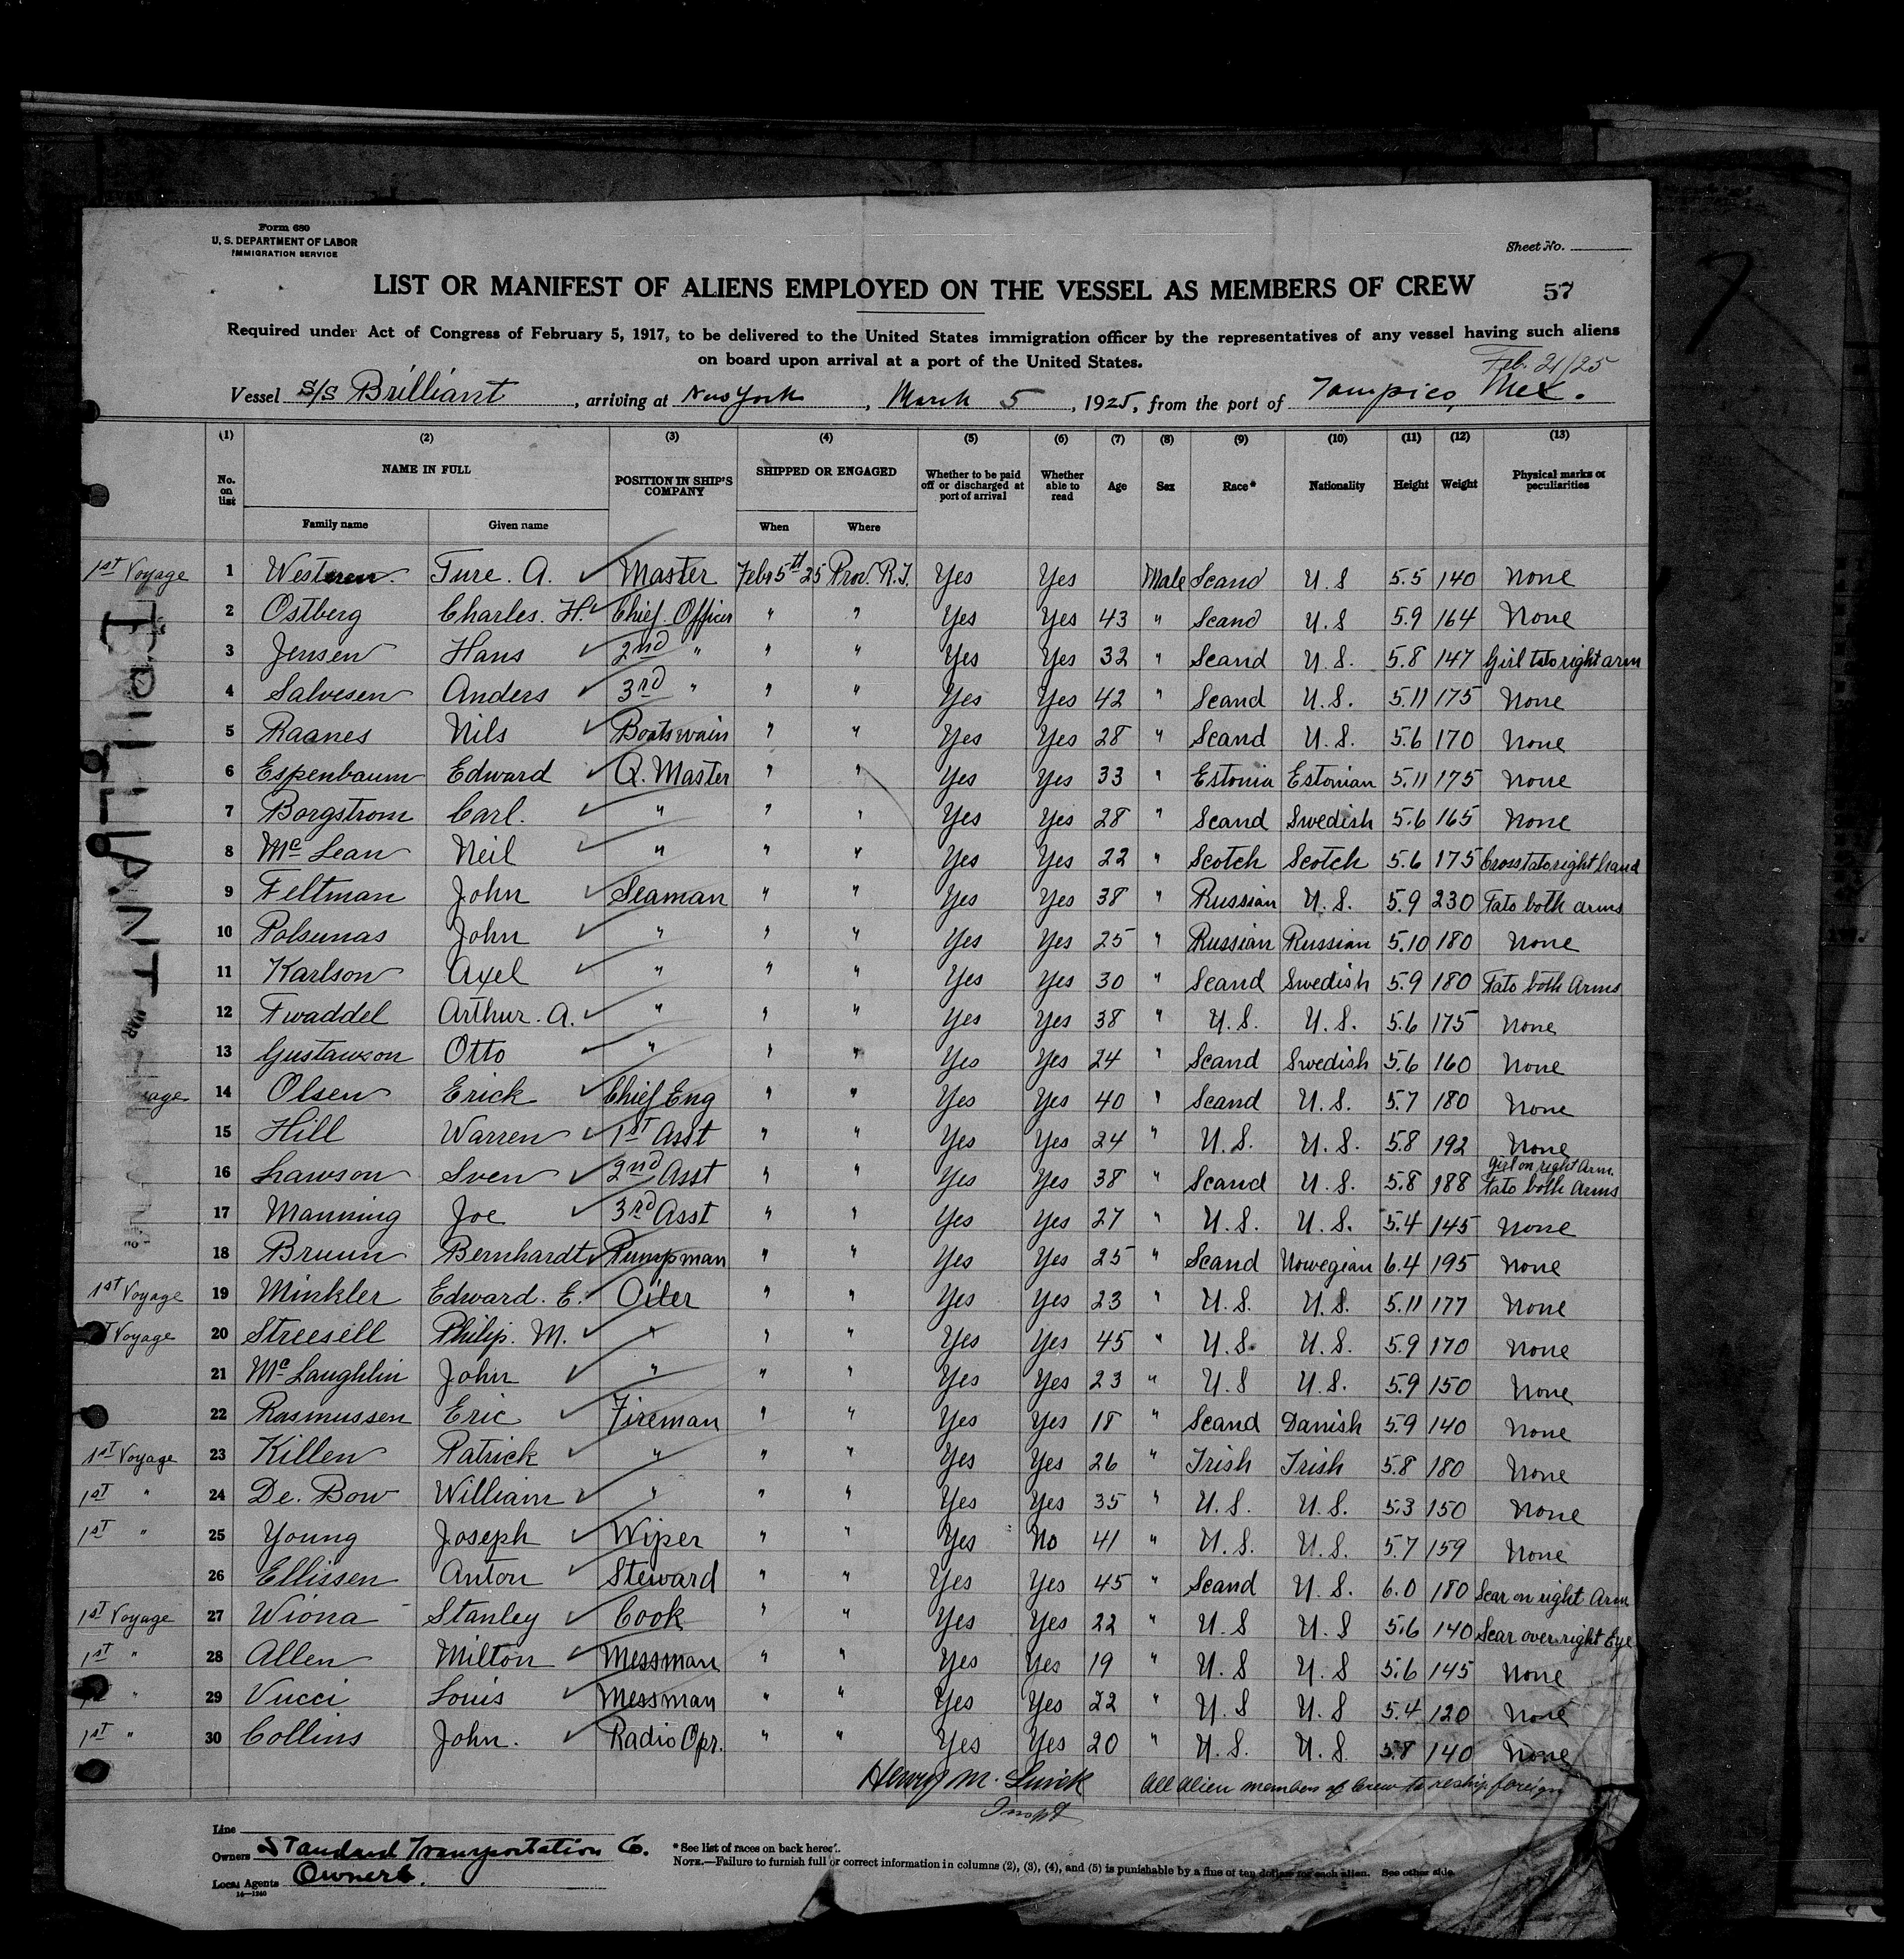 Form 680
U. S. DEPARTMENT OF LABOR
IMMIGRATION SERVICE
Sheet No.
LIST OR MANIFEST OF ALIENS EMPLOYED ON THE VESSEL AS MEMBERS OF CREW
57
Required under Act of Congress of February 5, 1917, to be delivered to the United States immigration officer by the representatives of any vessel having such aliens
on board upon arrival at a port of the United States.
Feb. 21/25
Vessel S/S Brilliant, arriving at New York, March 5, 1925, from the port of Tampico, Mex.
(1) (2) (3) (4) (5) (6) (7) (8) (9) (10) (11) (12) (13)
No. on list NAME IN FULL Family name Given name POSITION IN SHIP'S COMPANY SHIPPED OR ENGAGED When Where Whether to be paid off or discharged at port of arrival Whether able to read Age Sex Race* Nationality Height Weight Physical marks or peculiarities
1st Voyage 1 Westeren Ture. A. Master Feb 5th 25 Prov. R.I. Yes Yes Male Scand U.S 5.5 140 None
2 Ostberg Charles. H. Chief. Officer " " Yes Yes 43 " Scand U.S 5.9 164 None
3 Jensen Hans 2nd " " " Yes Yes 32 " Scand U.S. 5.8 147 Girl tato right arm
4 Salvesen Anders 3rd " " " Yes Yes 42 " Scand U.S. 5.11 175 None
5 Raanes Nils Boatswain " " Yes Yes 28 " Scand U.S. 5.6 170 None
6 Espenbaum Edward Q. Master " " Yes Yes 33 " Estonia Estonian 5.11 175 None
7 Borgstrom Carl. " " " Yes Yes 28 " Scand Swedish 5.6 165 None
8 McLean Neil " " " Yes Yes 22 " Scotch Scotch 5.6 175 Cross tato right hand
9 Feltman John Seaman " " Yes Yes 38 " Russian U.S. 5.9 230 Tato both arms
10 Polsunas John " " " Yes Yes 25 " Russian Russian 5.10 180 None
11 Karlson Axel " " " Yes Yes 30 " Scand Swedish 5.9 180 Tato both Arms
12 Twaddel Arthur. A. " " " Yes Yes 38 " U.S. U.S. 5.6 175 None
13 Gustawson Otto " " " Yes Yes 24 " Scand Swedish 5.6 160 None
14 Olsen Erick Chief Eng " " Yes Yes 40 " Scand U.S. 5.7 180 None
15 Hill Warren 1st Asst " " Yes Yes 24 " U.S. U.S. 5.8 192 None
16 Lawson Sven 2nd Asst " " Yes Yes 38 " Scand U.S. 5.8 188 Girl on right Arm. Tato both Arms
17 Manning Joe 3rd Asst " " Yes Yes 27 " U.S. U.S. 5.4 145 None
18 Bruun Bernhardt Pumpman " " Yes Yes 25 " Scand Nowegian 6.4 195 None
1st Voyage 19 Minkler Edward. E. Oiler " " Yes Yes 23 " U.S. U.S. 5.11 177 None
Voyage 20 Streesell Philip. M. " " " Yes Yes 45 " U.S. U.S. 5.9 170 None
21 McLaughlin John " " " Yes Yes 23 " U.S U.S. 5.9 150 None
22 Rasmussen Eric Fireman " " Yes Yes 18 " Scand Danish 5.9 140 None
1st Voyage 23 Killen Patrick " " " Yes Yes 26 " Irish Irish 5.8 180 None
1st " 24 De. Bow William " " " Yes Yes 35 " U.S. U.S. 5.3 150 None
1st " 25 Young Joseph Wiper " " Yes No 41 " U.S. U.S. 5.7 159 None
26 Ellissen Anton Steward " " Yes Yes 45 " Scand U.S. 6.0 180 Scar on right Arm
1st Voyage 27 Wiona Stanley Cook " " Yes Yes 22 " U.S U.S 5.6 140 Scar over right Eye
1st " 28 Allen Milton Messman " " Yes Yes 19 " U.S U.S 5.6 145 None
" 29 Vucci Louis Messman " " Yes Yes 22 " U.S U.S 5.4 120 None
1st " 30 Collins John. Radio Opr. " " Yes Yes 20 " U.S. U.S. 5.8 140 None
BRILLIANT
Henry M. All Alien members of Crew to reship foreign
Inspt
Line
Owners Standard Transportation Co.
Local Agents Owners.
14—1240
* See list of races on back hereof.
NOTE.—Failure to furnish full or correct information in columns (2), (3), (4), and (5) is punishable by a fine of ten dollars for each alien. See other side.